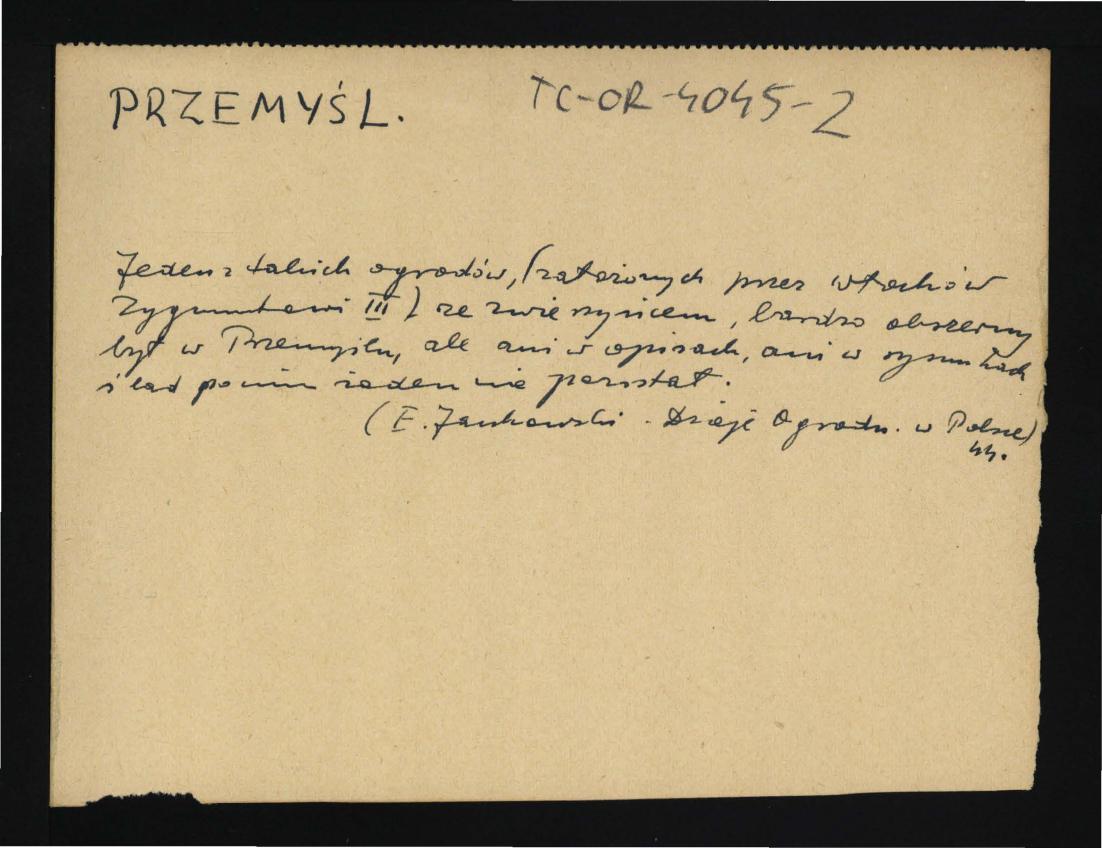 PRZEMYŚL. TC-OR-4045-2
Jeden z takich ogrodów, (założonych przez włochów
Zygmuntowi III) ze zwierzyńcem, bardzo obszerny
był w Przemyślu, ale ani w opisach, ani w rysunkach
ślad po nim żaden nie pozostał.
(E. Jankowski - Dzieje Ogrodn. w Polsce)
44.